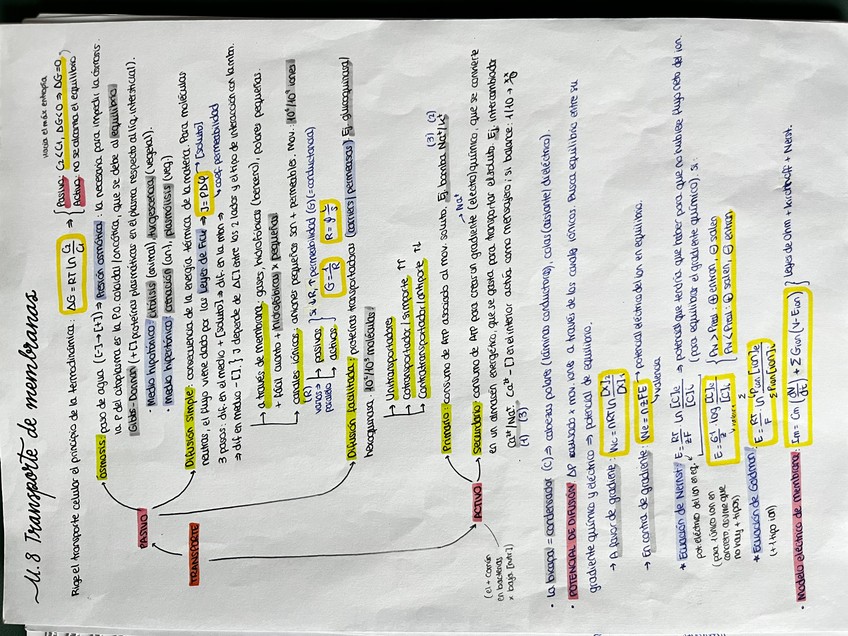 U.8 Transporte de membranas
Rige el transporte celular el principio de la termodinámica: ΔG=RT ln C₂/C₁ ⇒ { Pasivo: C₂<C₁, ΔG<0 ⇒ ΔG=0
hacia el máx entropía
Activo: no se alcanza el equilibrio
TRANSPORTE
PASIVO
Osmosis: paso de agua [-] → [+] ⇒ Presión osmótica: la necesaria para impedir la osmosis.
la P del citoplasma es la P.O coloidal/oncótica, que se debe al equilibrio
Gibbs-Donnan (+[] proteínas plasmáticas en el plasma respecto al líq. intersticial).
· Medio hipotónico: citólisis (animal), turgescencia (vegetal).
· Medio hipertónico: crenación (an), plasmólisis (veg)
Difusión simple: consecuencia de la energía térmica de la materia. Para moléculas
neutras, el flujo viene dado por las Leyes de Fick → J=PΔφ → [soluto]
↳ coef. permeabilidad
3 pasos: dif. en el medio + [soluto] ⇒ dif. en la mbn ⇒
⇒ dif en medio - [], J depende de Δ[] entre los 2 lados y el tipo de interacción con la mbn.
→ a través de membrana: gases, hidrofóbicas (benceno), polares pequeñas.
+ fácil cuanto + hidrofóbicas y pequeñas
→ canales iónicos: aniones pequeños son + permeables. Mov: iones/
(R) varios ⇒ pasivos
pasivo → activos
} si ↓R, ↑permeabilidad (G) (=conductancia)
G=1/R
Difusión facilitada: proteínas transportadoras (carriers/permeasas) Ej. glucoquinasa/
hexoquinasa. 10²/10³ moléculas/
→ Uniransportadores
→ cotransportador/simporte ↑↑
→ contratransportador/antiporte ↑↓
ACTIVO
(el + común
en bacterias
x baja [nutr])
Primario: consumo de ATP asociado al mov. soluto. Ej bomba Na⁺/K⁺
(3) (2)
→ Na⁺
Secundario: consumo de ATP para crear un gradiente (electro)químico, que se convierte
en un almacén energético, que se gasta para transportar el soluto. Ej intercambiador
Ca²⁺/Na⁺. Ca²⁺ - [] en el interior actúa como mensajero; si balance: ↑[] ⇒
(1) (3)
· La bicapa = condensador (C) ⇒ cabezas polares (láminas conductoras), colas (aislante/dieléctrico).
· POTENCIAL DE DIFUSIÓN: ΔP causado x mov. ions a través de los canales iónicos. Busca equilibrio entre su
gradiente químico y eléctrico ⇒ potencial de equilibrio.
→ A favor de gradiente: Wc = nRT ln
→ En contra de gradiente: We = nzFE → potencial eléctrico del ion en equilibrio.
↳ valencia
* Ecuación de Nernst: E = RT/zF ln [C]e/[C]i ⇒ potencial que tendría que haber para que no hubiese flujo neto del ion.
pot eléctrico del ion en eq.
(para equilibrar el gradiente químico). Si:
(para único ion en
concreto, asume que
no hay + tipos)
E = 61/z log [C]e/[C]i
{ PM > Pion: ⊕ entran, ⊖ salen
PM < Pion: ⊕ salen, ⊖ entran
* Ecuación de Goldman:
(+ 1 tipo ion)
E = RT/F ln Σ Pion [ion]e / Σ Pion [ion]i
· Modelo eléctrico de membrana: Im = Cm (dV/dt) + Σ Gion (V - Eion) } Leyes de Ohm + Kirchhoff + Nernst.